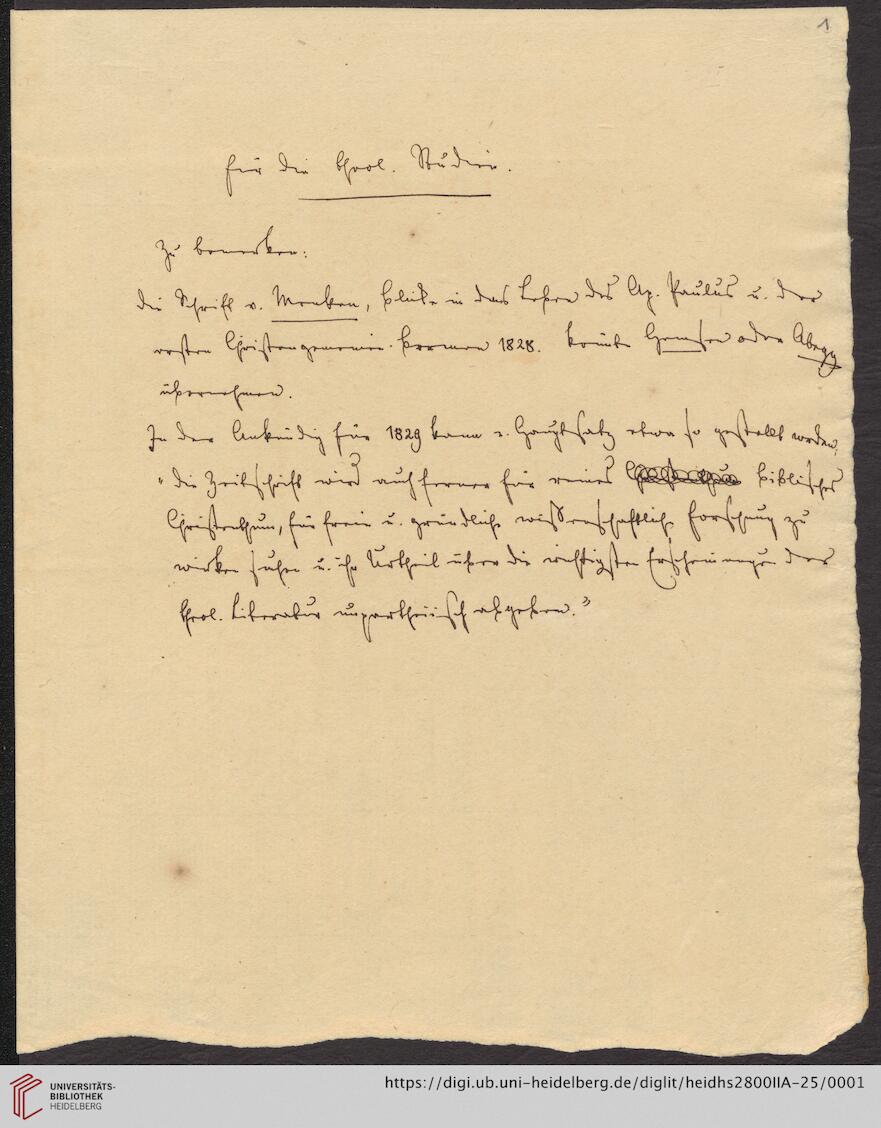 1
Für die theol. Studien.
Zu bemerken:
Die Schrift v. Menken, Blicke in das Leben des Ap. Paulus u. der
ersten Christengemeinen. Bremen 1828. könnte oder Abegg
übernehmen.
In der Ankündig für 1829 kann d. Hauptsatz etwa so gestellt werden,
"die Zeitschrift wird auch ferner für reines biblisches
Christenthum, für freie u. gründliche wissenschaftliche Forschung zu
wirken suchen u. ihr Urtheil über die wichtigsten Erscheinungen der
theol. Literatur unpartheiisch abgeben."
UNIVERSITÄTS-
BIBLIOTHEK
HEIDELBERG
https://digi.ub.uni-heidelberg.de/diglit/heidhs2800IIA-25/0001